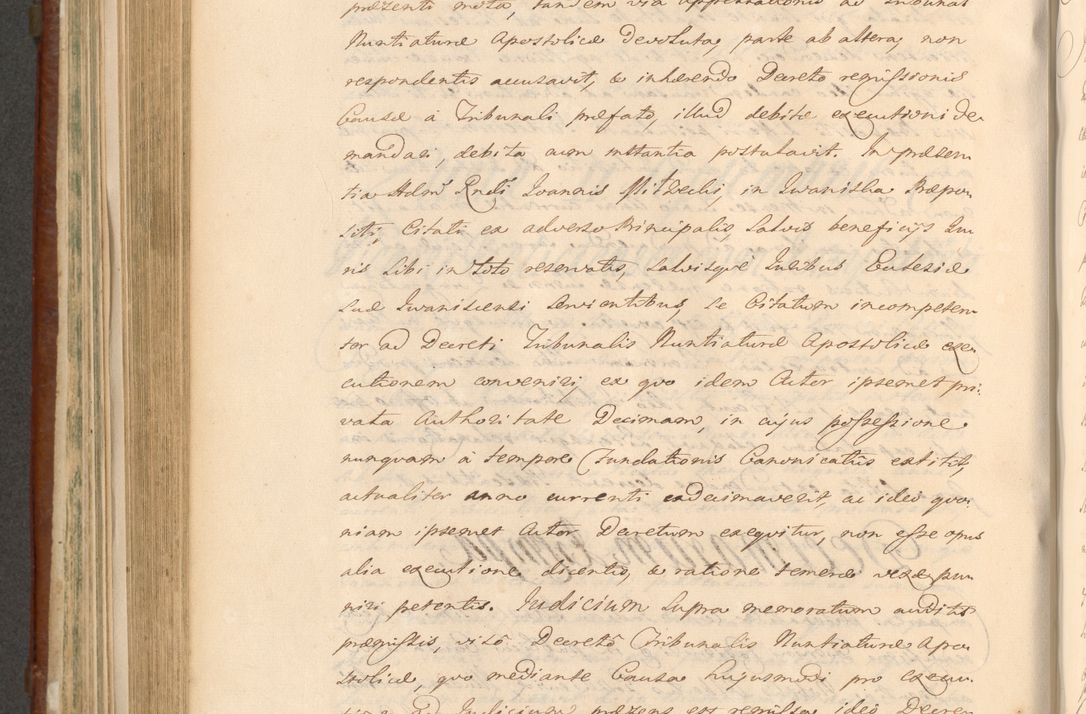 præzenti mota, tandem via appellationis ad Tribunal
Nuntiaturæ Apostolicæ devoluta, parte ab altera, non
respondentis accusavit, & inhærendo Decreto remissionis
Causæ à Tribunali præfato, illud debitæ executioni de-
mandari, debita cum instantia postulavit. In præsen-
tia Admᵈⁱ Rndi Joannis Mitzelij, in Jwaniska Præpo-
siti, Citati ex adverso Principalis, salvis beneficijs Ju-
ris sibi in toto reservatis, salvisque Juribus Ecclesiæ
suæ Jwaniscensi servientibus, se Citatum incompeten-
ter ad Decreti Tribunalis Nuntiaturæ Apostolicæ exe-
cutionem conveniri, ex quo idem Actor ipsemet pri-
vata Authoritate Decimam, in cujus possessione
nunquam à tempore Fundationis Canonicatûs extitit,
actualiter anno currenti exdecimaverit, ac ideò quo-
niam ipsemet Actor Decretum exequitur, non esse opus
alia executione dicentis, & ratione temerè vexæ pu-
niri petentis. Judicium supra memoratum auditis
præmissis, visô Decretô Tribunalis Nuntiaturæ Apo-
stolicæ, quo mediante Causa hujusmodi pro execu-
tione Ad Judicium præzens est remissa, ideò Decre-